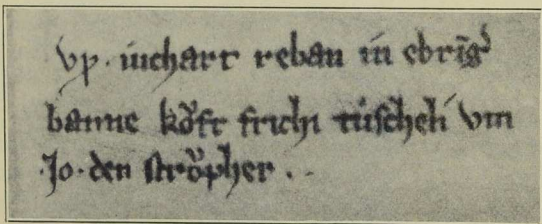 vp · iuchart reban in ebrīg᾽
banne kŏft frichi tüscheli vm
· Jo · den strŏpher · .